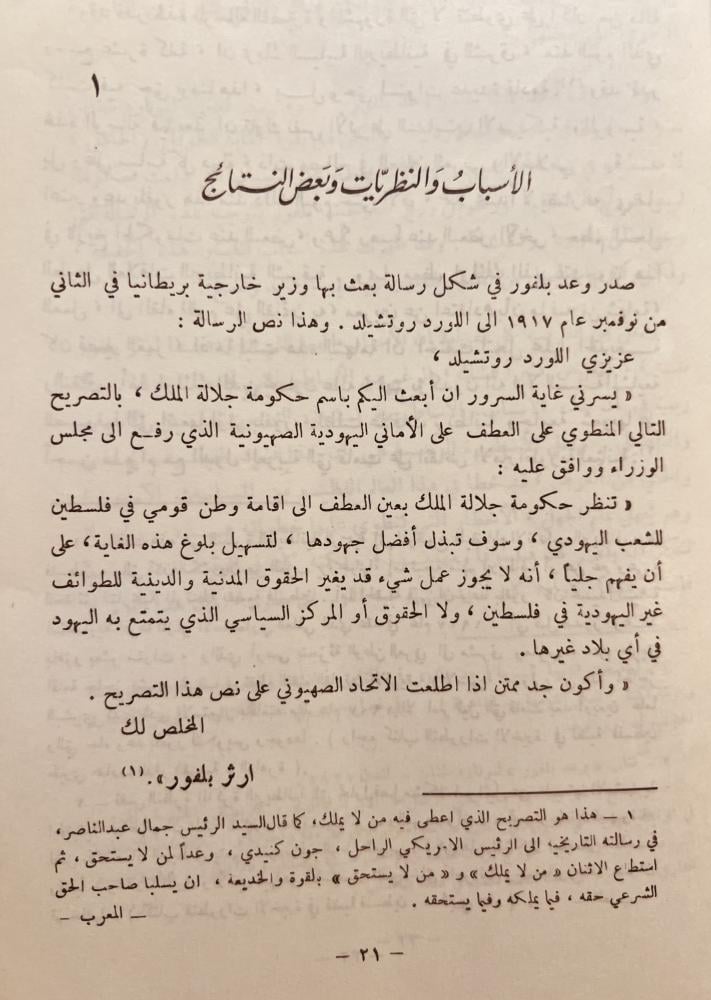 ١
الأسبابُ وَالنظريّات وَبَعض النتائج
صدر وعد بلفور في شكل رسالة بعث بها وزير خارجية بريطانيا في الثاني
من نوفمبر عام ١٩١٧ الى اللورد روتشيلد . وهذا نص الرسالة :
عزيزي اللورد روتشيلد ،
« يسرني غاية السرور ان أبعث اليكم باسم حكومة جلالة الملك ، بالتصريح
التالي المنطوي على العطف على الأماني اليهودية الصهيونية الذي رفع الى مجلس
الوزراء ووافق عليه :
« تنظر حكومة جلالة الملك بعين العطف الى اقامة وطن قومي في فلسطين
للشعب اليهودي ، وسوف تبذل أفضل جهودها ، لتسهيل بلوغ هذه الغاية ، على
أن يفهم جلياً ، أنه لا يجوز عمل شيء قد يغير الحقوق المدنية والدينية للطوائف
غير اليهودية في فلسطين ، ولا الحقوق أو المركز السياسي الذي يتمتع به اليهود
في أي بلاد غيرها .
« وأكون جد ممتن اذا اطلعت الاتحاد الصهيوني على نص هذا التصريح .
المخلص لك
ارثر بلفور » . (١)
١ – هذا هو التصريح الذي اعطى فيه من لا يملك، كما قال السيد الرئيس جمال عبدالناصر،
في رسالته التاريخية الى الرئيس الامريكي الراحل ، جون كنيدي ، وعداً لمن لا يستحق ، ثم
استطاع الاثنان « من لا يملك » و « من لا يستحق » بالقوة والخديعة ، ان يسلبا صاحب الحق
الشرعي حقه ، فيما يملكه وفيما يستحقه .
– المعرب –
– ٢١ –